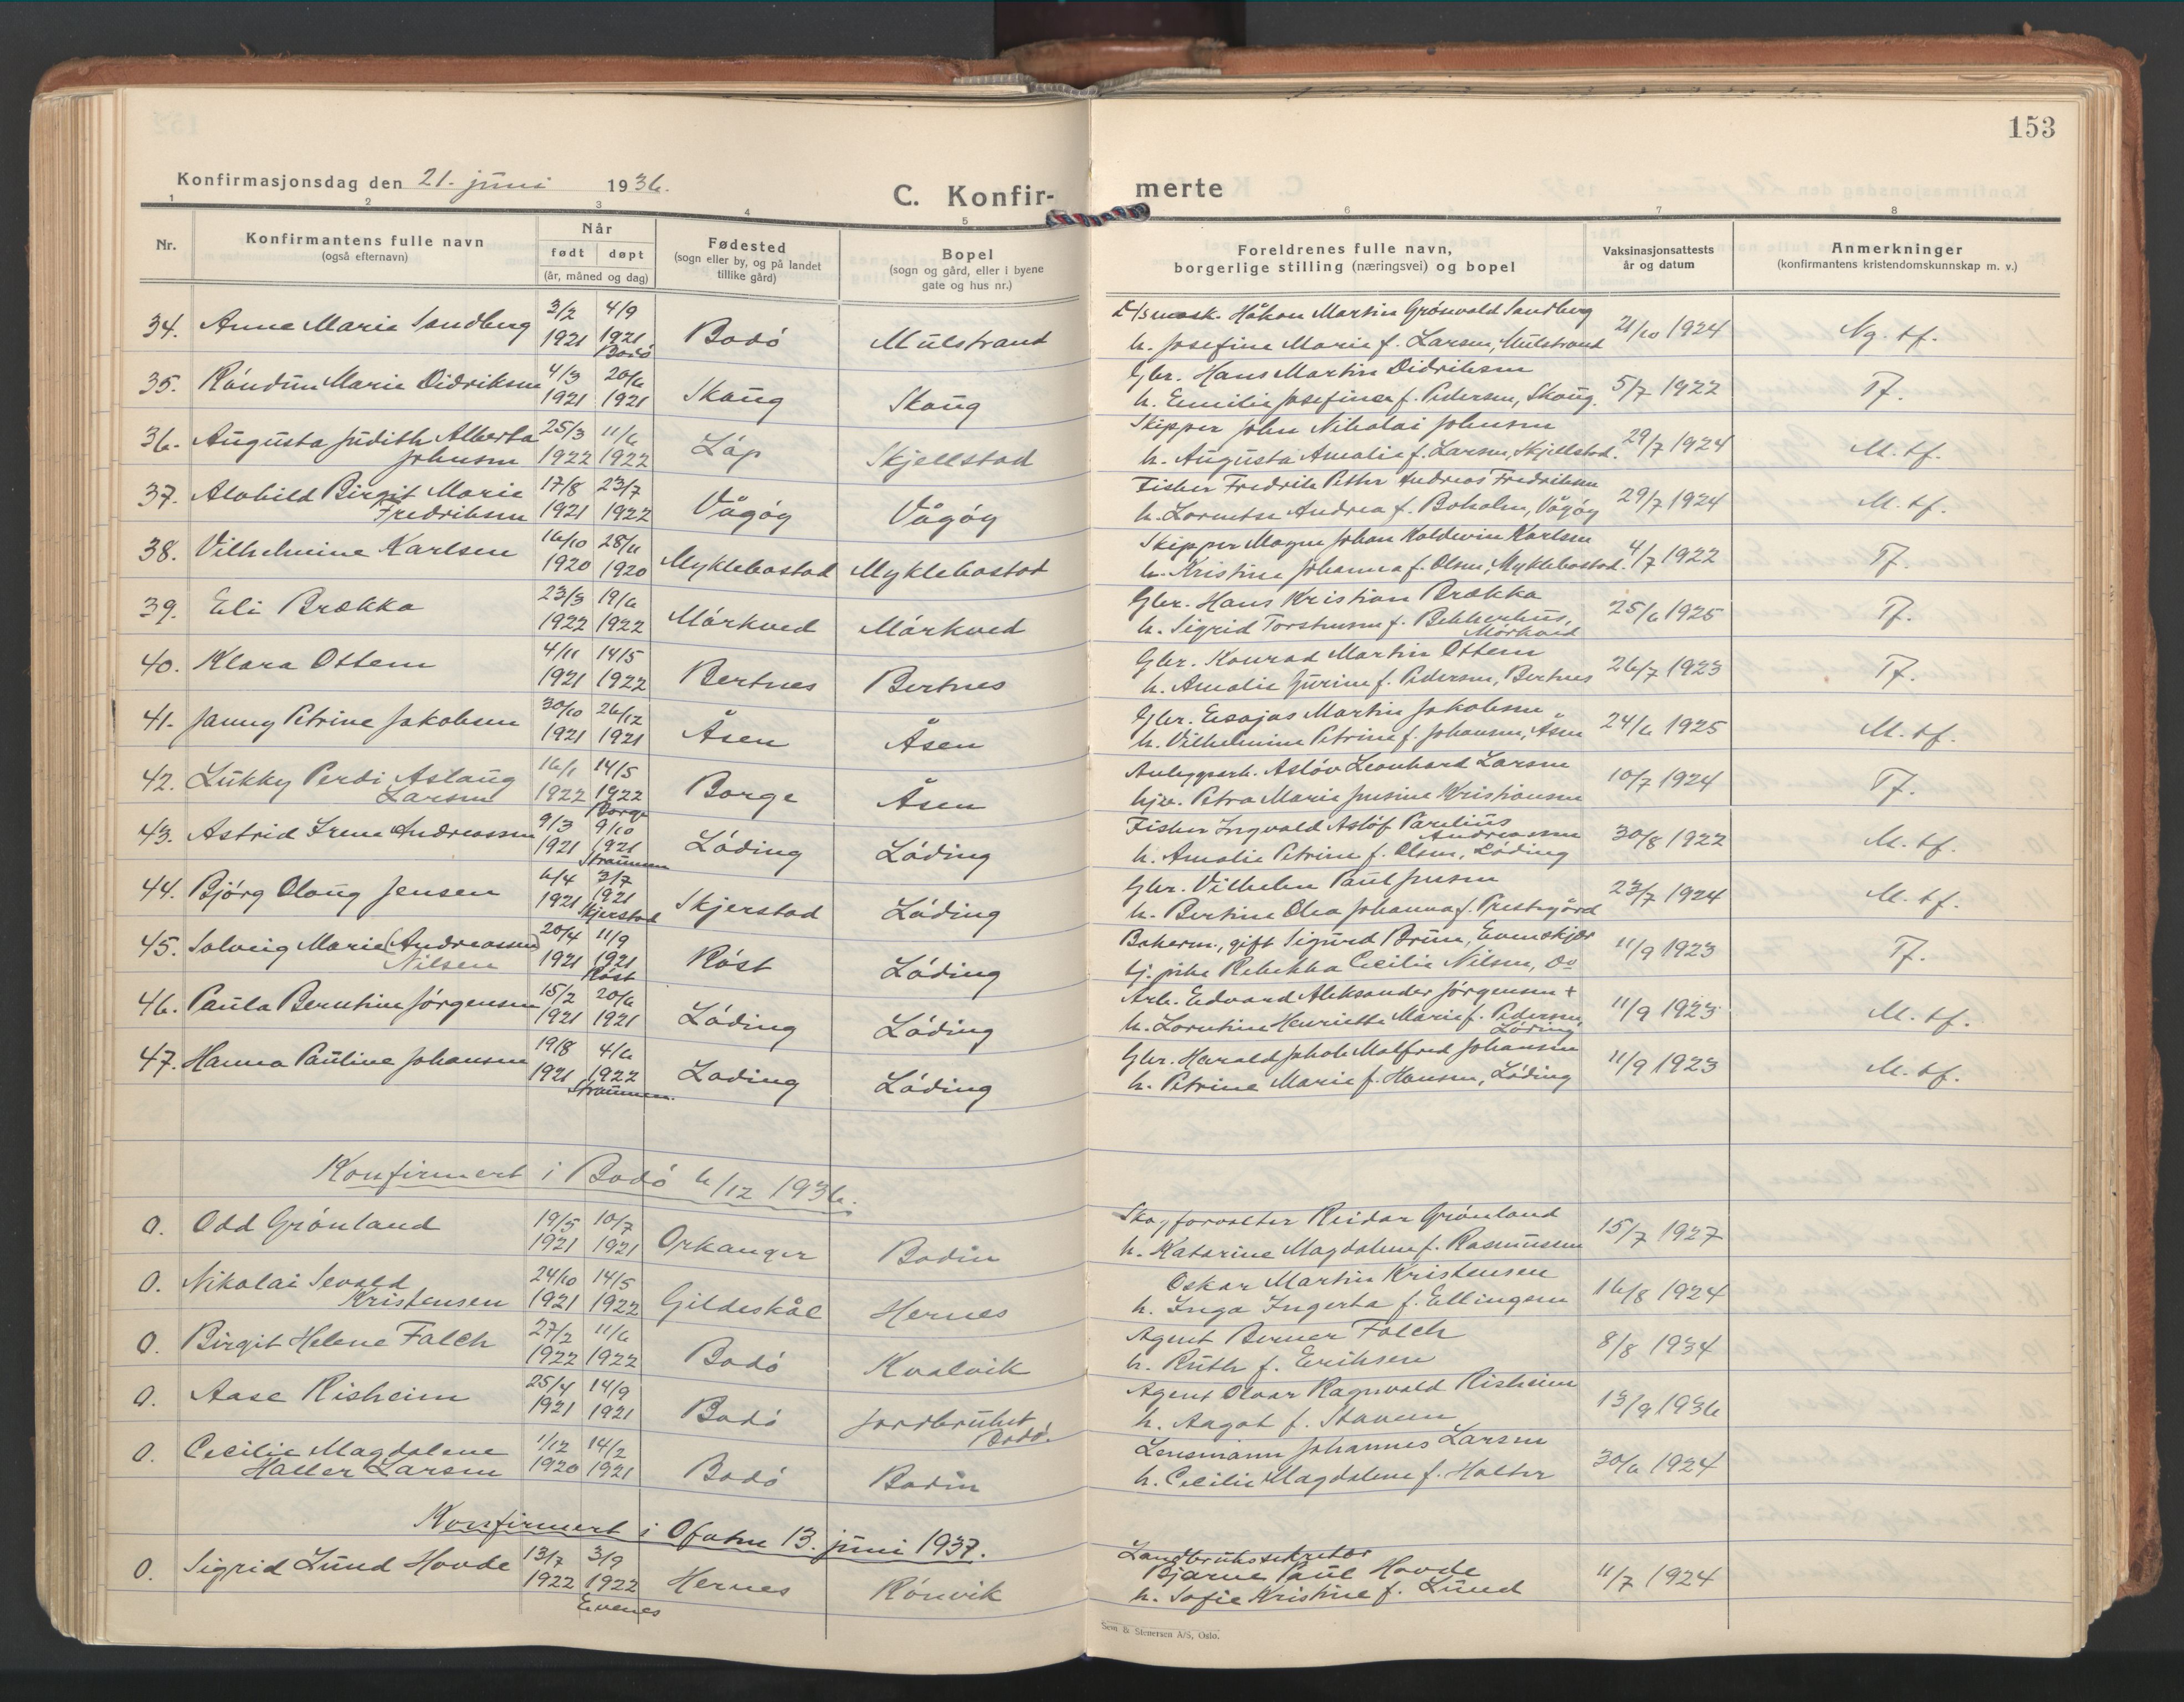 153
Konfirmasjonsdag den 21. juni 1936.
C. Konfir-
merte
1 2 3 4 5 6 7 8
Nr.
Konfirmantens fulle navn
(også efternavn)
Når
født døpt
(år, måned og dag)
Fødested
(sogn eller by, og på landet
tillike gård)
Bopel
(sogn og gård, eller i byene
gate og hus nr.)
Foreldrenes fulle navn,
borgerlige stilling (næringsvei) og bopel
Vaksinasjonsattests
år og datum
Anmerkninger
(konfirmantens kristendomskunnskap m. v.)
34. Anne Marie Sandberg 3/2 1921 4/9 1921 Bodó Bodó Mulstrand
Håkon Martin Grönvold Sandberg
h. Josefine Marie f. Larsen, Mulstrand 21/10 1924 Ng. tf.
35. Róndun Marie Didriksen 4/3 1921 20/6 1921 Skaug Skaug
Gbr. Hans Martin Didriksen
h. Emilie Josefine f. Pedersen, Skaug. 5/7 1922 Tf.
36. Augusta Judith Alberta
Johnsen 25/3 1922 11/6 1922 Lóp Skjellstad
Skipper John Nikolai Johnsen
h. Augusta Amalie f. Larsen, Skjellstad. 29/7 1924 M. tf.
37. Alvhild Birgit Marie
Fredriksen 17/8 1921 23/7 1922 Vågóy Vågóy
Fisker Fredrik Peter Andreas Fredriksen
h. Lorntse Andrea f. Boholm, Vågóy 29/7 1924 M. tf.
38. Vilhelmine Karlsen 16/10 1920 28/11 1920 Myklebostad Myklebostad
Skipper Magnu Johan Kaldevin Karlsen
h. Kristine Johanna f. Olsen, Myklebostad. 4/7 1922 Tf.
39. Eli Brækka 23/3 1922 19/6 1922 Mórkved Mórkved
Gbr. Hans Kristian Brækka
h. Sigrid Torstensen f. Bekkerhus,
Mórkved 25/6 1925 Tf.
40. Klara Ottem 4/11 1921 14/5 1922 Bertnes Bertnes
Gbr. Konrad Martin Ottem
h. Amalie Gurine f. Pedersen, Bertnes 26/7 1923 Tf.
41. Janny Petrine Jakobsen 30/10 1921 26/12 1921 Åsen Åsen
Gbr. Esajas Martin Jakobsen
h. Vilhelmine Petrine f. Johansen, Åsen 24/6 1925 M. tf.
42. Lukky Perdi Aslaug
Larsen 16/1 1922 14/5 1922 Borge Borge Åsen
Anleggsarb. Aslóv Leonhard Larsen
hjv. Petra Marie Jensine Kristiansen 10/7 1924 Tf.
43. Astrid Irene Andreassen 9/3 1921 9/10 1921 Straumen Lóding Lóding
Fisker Ingvald Aslóf Parelius
Andreassen
h. Amalie Petrine f. Olsen, Lóding 30/8 1922 M. tf.
44. Bjórg Olaug Jensen 6/4 1921 3/7 1921 Skjerstad Skjerstad Lóding
Gbr. Vilhelm Paul Jensen
h. Bertine Olea Johanna f. Prestegård 23/7 1924 M. tf.
45. Solveig Marie (Andreassen)
Nilsen 20/4 1921 11/9 1921 Róst Róst Lóding
Bakerm., gift Sigurd Brun, Evenskjer
tj. pike Rebekka Cecilie Nilsen, Do 11/9 1923 Tf.
46. Paula Berntine Jórgensen 15/2 1921 20/6 1921 Lóding Lóding
Arb. Edvard Aleksander Jórgensen +
h. Lorntine Henriette Marie f. Pedersen,
Lóding 11/9 1923 M. tf.
47. Hanna Pauline Johansen 19/8 1921 4/6 1922 Straumen. Loding Lóding
Gbr. Harald Jakob Malfred Johansen
h. Petrine Marie f. Hansen, Lóding 11/9 1923 M. tf.
Konfirmert i Bodó 6/12 1936.
0. Odd Grónland 19/5 1921 10/7 1921 Orkanger Bodin
Skogforvalter Reidar Grónland
h. Katarine Magdalene f. Rasmussen 15/7 1927
0. Nikolai Sevald
Kristensen 24/10 1921 14/5 1922 Gildeskål Hernes
Oskar Martin Kristensen
h. Inga Ingerta f. Ellingsen 16/8 1924
0. Birgit Helene Falch 27/2 1922 11/6 1922 Bodó Kvalvik
Agent Berner Falch
h. Ruth f. Eriksen 8/8 1934
0. Aase Risheim 25/4 1921 14/9 1921 Bodó Jordbruket
Bodó.
Agent Olvar Ragnvald Risheim
h. Aagot f. Stavem 13/9 1936
0. Cecilie Magdalene
Halter Larsen 1/12 1920 14/2 1921 Bodó Bodin
Lensmann Johannes Larsen
h. Cecilie Magdalene f. Halter 30/6 1924
Konfirmert i Ofoten 13. juni 1937.
0. Sigrid Lund Hovde 13/7 1922 3/9 1922 Evenes Hernes Rónvik
Landbrukssekretær
Bjarne Paul Hovde
h. Sofie Kristine f. Lund 11/7 1924
Sem & Stenersen A/S, Oslo.